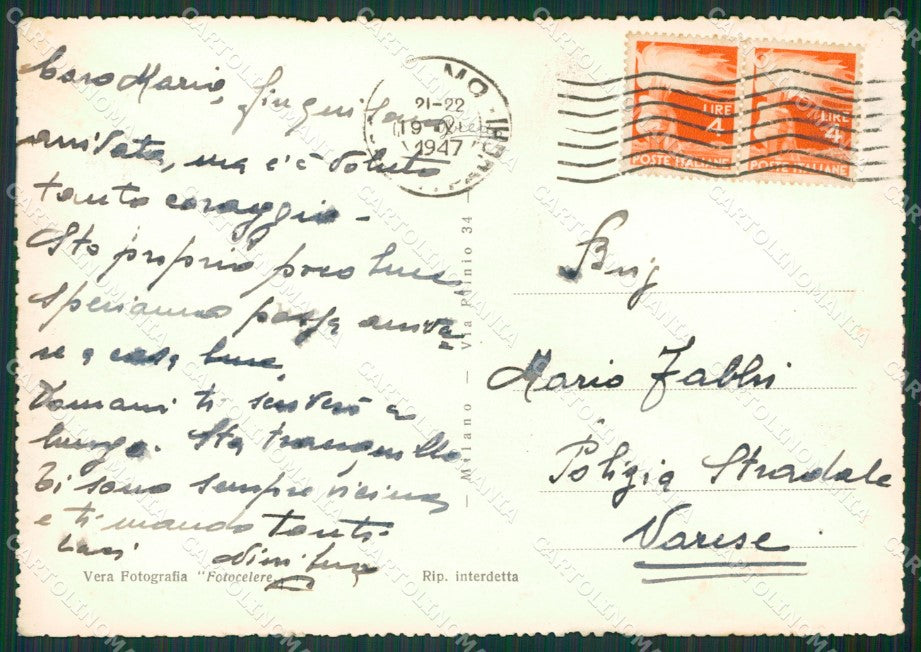 Caro Mario, fin qui sono
arrivata, ma c'è voluto
tanto coraggio -
Sto proprio poco bene
speriamo possa arriva-
re a casa bene,
Domani ti scriverò a
lungo. Sta tranquillo
Ti sono sempre vicina
e ti mando tanti
baci
Vera Fotografia "Fotocelere"
Rip. interdetta
— Milano — Via Plinio 34 —
21-22
19
1947
LIRE
4
POSTE ITALIANE
LIRE
4
POSTE ITALIANE
Brig
Mario Fabbri
Polizia Stradale
Varese
CARTOLINOMANIA